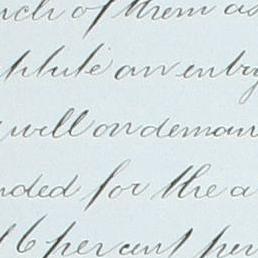 of them as
an entry
will on demand
for the a
6 per cent per